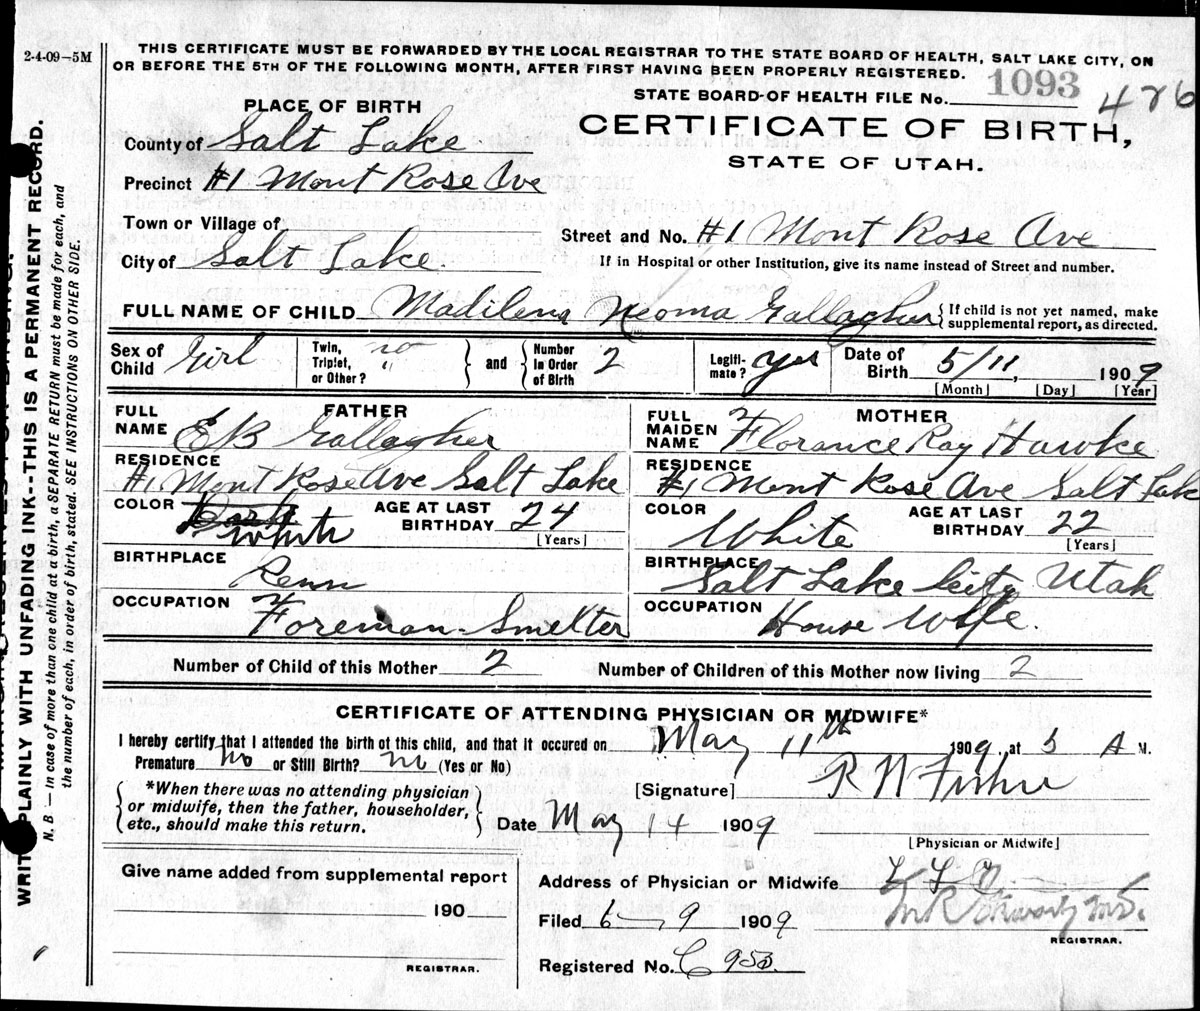 2-4-09-5M
THIS CERTIFICATE MUST BE FORWARDED BY THE LOCAL REGISTRAR TO THE STATE BOARD OF HEALTH, SALT LAKE CITY, ON
OR BEFORE THE 5TH OF THE FOLLOWING MONTH, AFTER FIRST HAVING BEEN PROPERLY REGISTERED.
1093
STATE BOARD OF HEALTH FILE No.
476
PLACE OF BIRTH
CERTIFICATE OF BIRTH,
STATE OF UTAH.
County of Salt Lake
Precinct #1 Mont Rose Ave
Town or Village of
Street and No. #1 Mont Rose Ave
City of Salt Lake
If in Hospital or other Institution, give its name instead of Street and number.
FULL NAME OF CHILD Madilena Neoma Gallagher {If child is not yet named, make supplemental report, as directed.
Sex of Child Girl
Twin, Triplet, or Other? no "
and
Number in Order of Birth 2
Legitimate? yes
Date of Birth 5/11, 1909
[Month] [Day] [Year]
FATHER
FULL NAME E B Gallagher
MOTHER
FULL MAIDEN NAME Florance Ray Hawke
RESIDENCE #1 Mont Rose Ave Salt Lake
RESIDENCE #1 Mont Rose Ave Salt Lake
COLOR White
AGE AT LAST BIRTHDAY 24
[Years]
COLOR White
AGE AT LAST BIRTHDAY 22
[Years]
BIRTHPLACE Penn
BIRTHPLACE Salt Lake City Utah
OCCUPATION Foreman-Smelter
OCCUPATION House Wife.
Number of Child of this Mother 2
Number of Children of this Mother now living 2
CERTIFICATE OF ATTENDING PHYSICIAN OR MIDWIFE*
I hereby certify that I attended the birth of this child, and that it occured on May 11th 1909, at 5 A M.
Premature No or Still Birth? no (Yes or No)
[Signature] R W Fisher
*When there was no attending physician
or midwife, then the father, householder,
etc., should make this return.
Date May 14 1909
[Physician or Midwife]
Give name added from supplemental report
190
REGISTRAR.
Address of Physician or Midwife
Filed 6-9 1909
M.D.
REGISTRAR.
Registered No. C 953
WRITE PLAINLY WITH UNFADING INK--THIS IS A PERMANENT RECORD.
N. B.—In case of more than one child at a birth, a SEPARATE RETURN must be made for each, and
the number of each, in order of birth, stated. SEE INSTRUCTIONS ON OTHER SIDE.